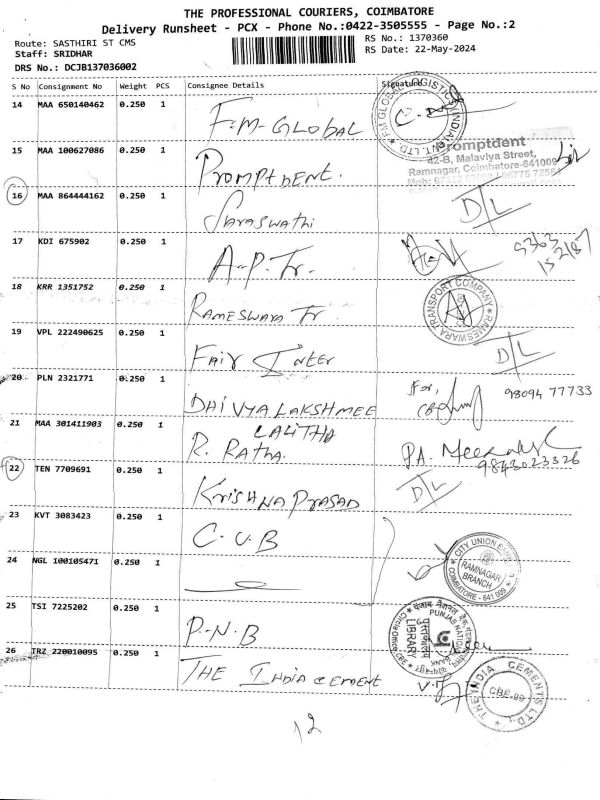 THE PROFESSIONAL COURIERS, COIMBATORE
Delivery Runsheet - PCX - Phone No.:0422-3505555 - Page No.:2
Route: SASTHIRI ST CMS
Staff: SRIDHAR
RS No.: 1370360
RS Date: 22-May-2024
DRS No.: DCJB137036002
S No Consignment No Weight PCS Consignee Details Signature
14 MAA 650140462 0.250 1 F-M-GLOBAL
15 MAA 100627086 0.250 1 PROMPTDENT.
Promptdent
42-B, Malaviya Street,
Ramnagar, Coimbatore-641009
16 MAA 864444162 0.250 1 Saraswathi D/L
17 KDI 675902 0.250 1 A-P. Tr. 9363
152187
18 KRR 1351752 0.250 1 RAMESWARA Tr.
RAMESWARA TRANSPORT COMPANY
19 VPL 222490625 0.250 1 FAIR INTER D/L
20 PLN 2321771 0.250 1 DAIVYALAKSHMEE For, 98094 77733
21 MAA 301411903 0.250 1 LALITHA
R. Ratha. 9843023326
22 TEN 7709691 0.250 1 KRISHNA PRASAD D/L
23 KVT 3083423 0.250 1 C.U.B
24 NGL 100105471 0.250 1
CITY UNION BANK
RAMNAGAR
BRANCH
COIMBATORE - 641 009
25 TSI 7225202 0.250 1 P.N.B
PUNJAB NATIONAL BANK
LIBRARY
26 TRZ 220010095 0.250 1 THE INDIA CEMENT
THE INDIA CEMENTS LTD.
CBE-09
12